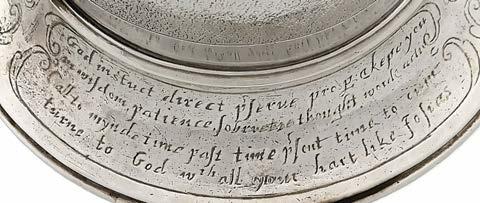 God instuct direct pserve prop &kepe you
in wisdom, patience, sobryete thought word
call to mynde time past time psent time to cum
turne to God wth all your hart like Josias